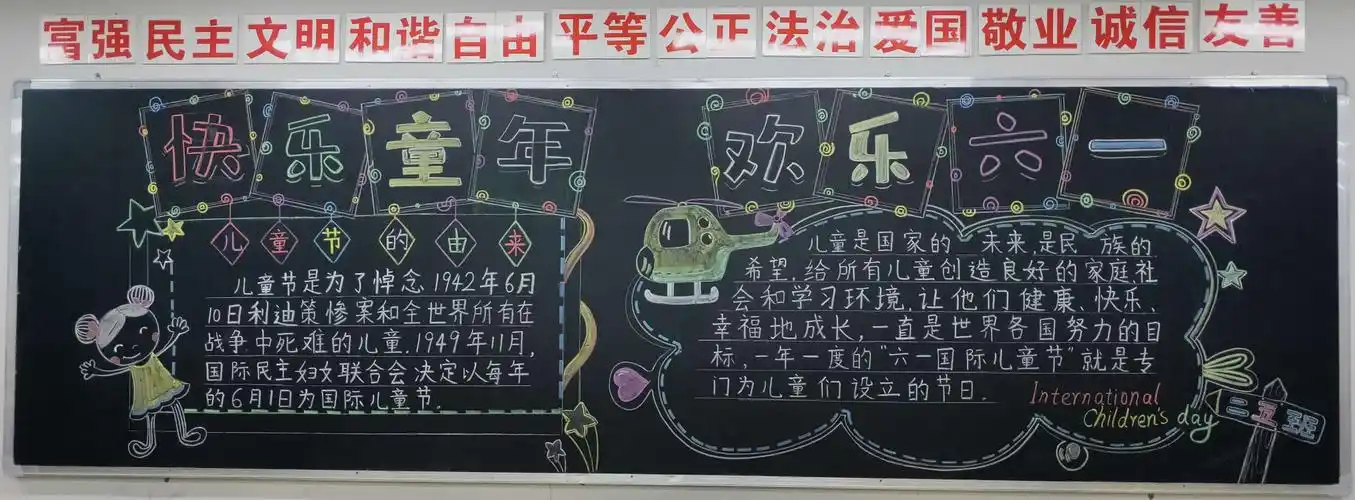 富强 民主 文明 和谐 自由 平等 公正 法治 爱国 敬业 诚信 友善
快乐童年
儿童节的由来
儿童节是为了悼念1942年6月
10日利迪策惨案和全世界所有在
战争中死难的儿童.1949年11月,
国际民主妇女联合会决定以每年
的6月1日为国际儿童节.
欢乐六一
儿童是国家的未来,是民族的
希望,给所有儿童创造良好的家庭社
会和学习环境,让他们健康、快乐、
幸福地成长,一直是世界各国努力的目
标,一年一度的“六一国际儿童节”就是专
门为儿童们设立的节日.
International
Children's day
二五班